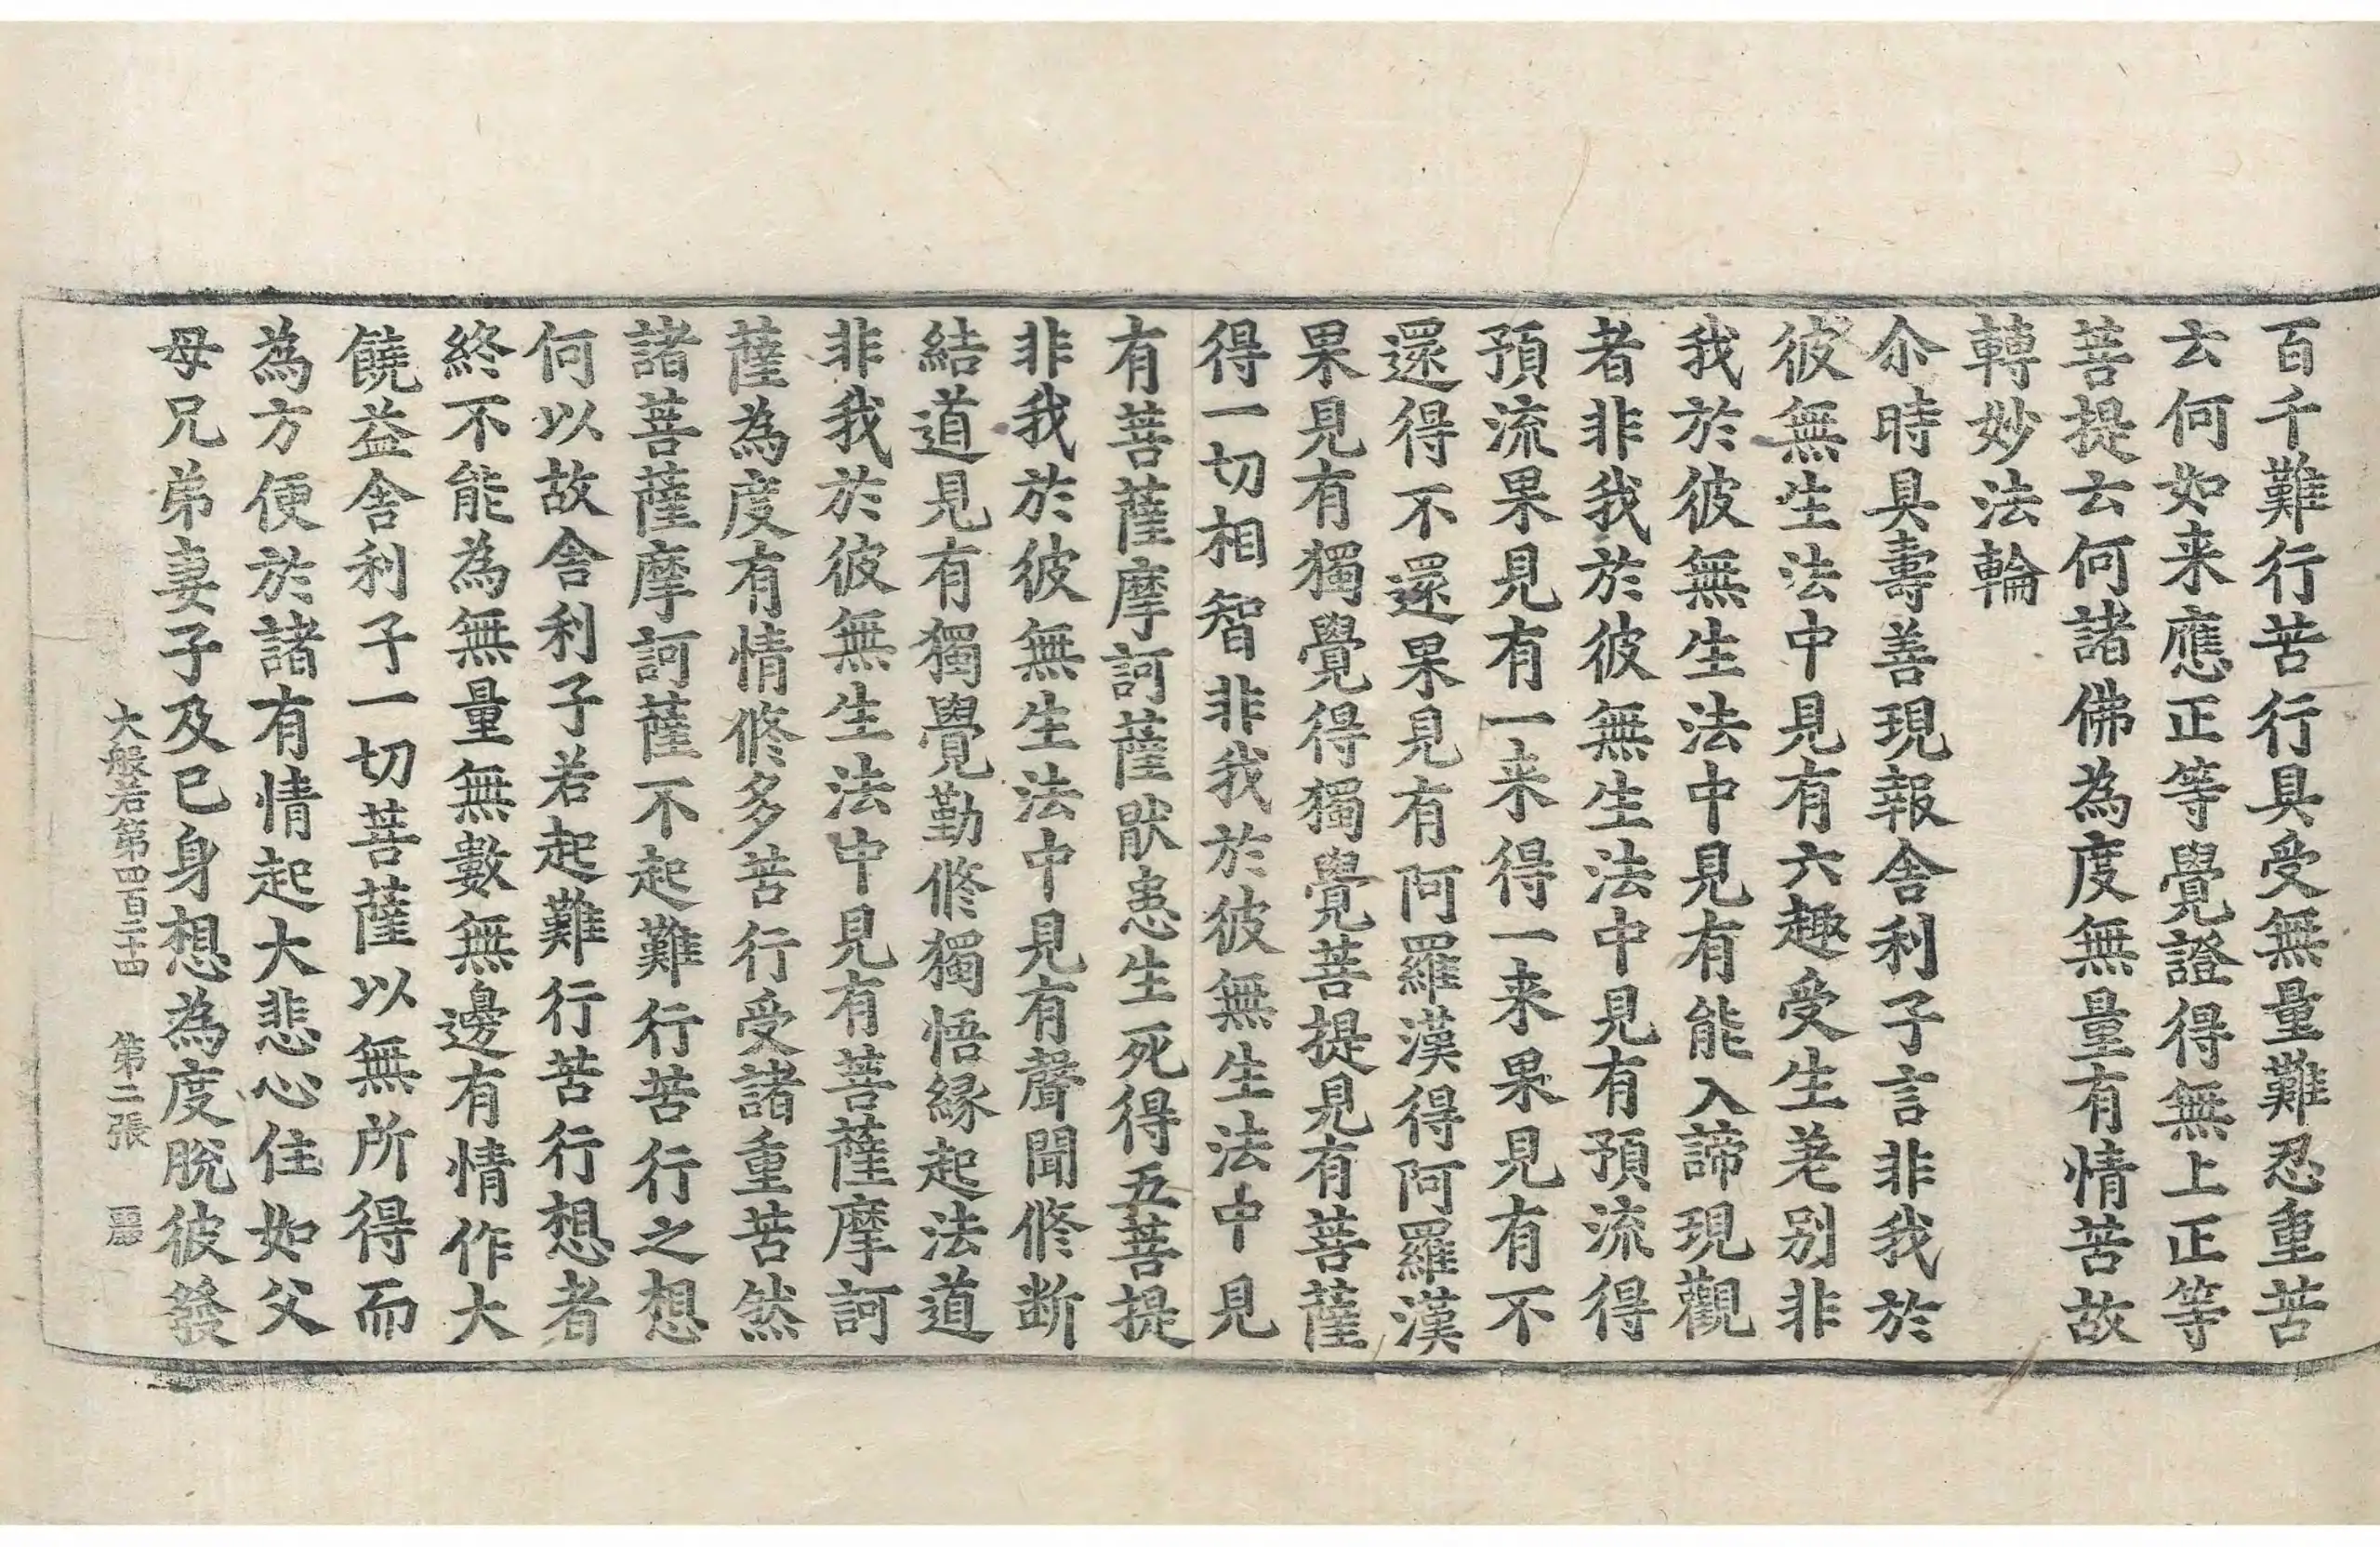 百千難行苦行具受無量難忍重苦
云何如来應正等覺證得無上正等
菩提云何諸佛為度無量有情苦故
轉妙法輪
尒時具壽善現報舎利子言非我於
彼無生法中見有六趣受生差别非
我於彼無生法中見有能入諦現觀
者非我於彼無生法中見有預流得
預流果見有一来得一来果見有不
還得不還果見有阿羅漢得阿羅漢
果見有獨覺得獨覺菩提見有菩薩
得一切相智非我於彼無生法中見
有菩薩摩訶薩猒患生死得五菩提
非我於彼無生法中見有聲聞修断
結道見有獨覺勤修獨悟縁起法道
非我於彼無生法中見有菩薩摩訶
薩為度有情修多苦行受諸重苦然
諸菩薩摩訶薩不起難行苦行之想
何以故舎利子若起難行苦行想者
終不能為無量無數無邊有情作大
饒益舎利子一切菩薩以無所得而
為方便於諸有情起大悲心住如父
母兄弟妻子及己身想為度脫彼發
大般若第四百二十四 第二張 麗